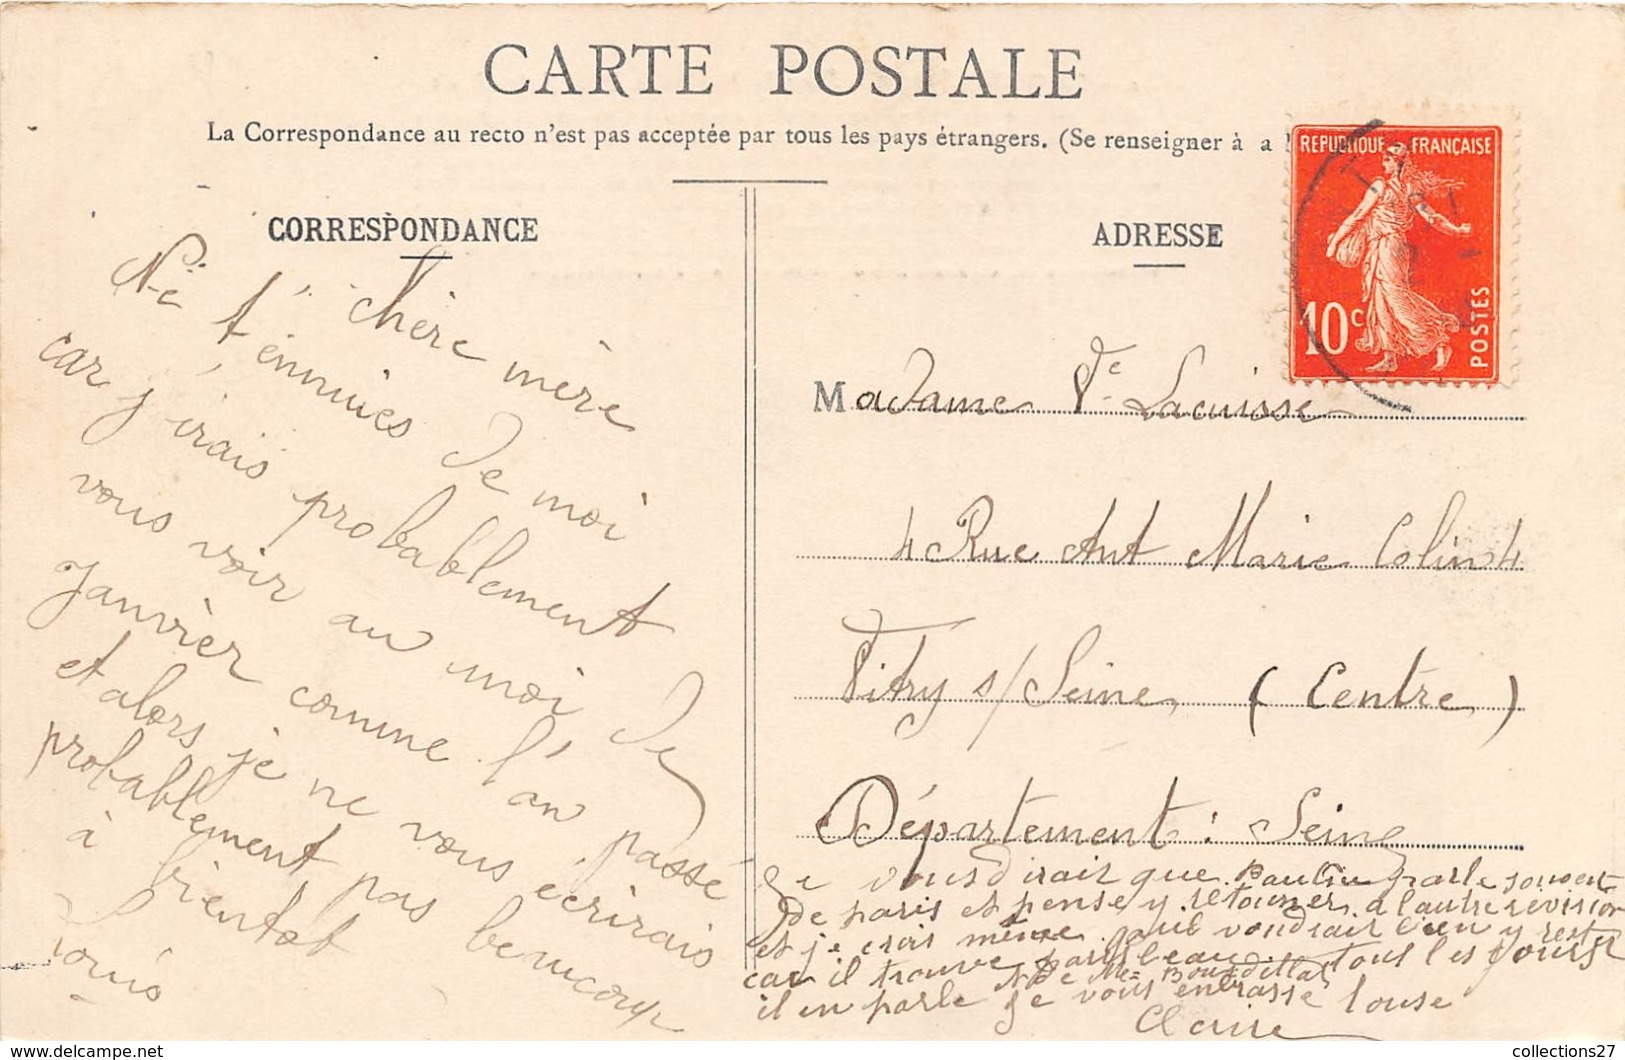 CARTE POSTALE
La Correspondance au recto n'est pas acceptée par tous les pays étrangers. (Se renseigner à a
REPUBLIQUE FRANÇAISE
10c
POSTES
CORRESPONDANCE
chère mère
Ne t'ennuies de moi
car j'irais probablement
vous voir au moi de
janvier comme l'an passé
et alors je ne vous écrirais
probablement pas beaucoup
à bientot
Louis
ADRESSE
Madame Ve Lacuisse
4 Rue Ant Marie Colin 4
Vitry s/ Seine (Centre)
Département: Seine
Je vous dirait que parle souvent
de paris et pense y retourner a l'autre revision
et je crois même voudrait bien y rester
car il trouve paris beau tout les jours
il en parle Je vous embrasse touse
Claire
collections27